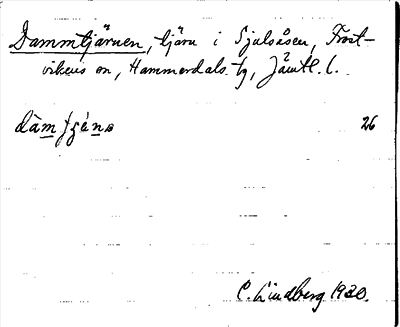 Dammtjärnen, tjärn i Sjulsåsen, Frost-
vikens sn, Hammerdals tg, Jämtl. l.
26
C. Lindberg 1920.